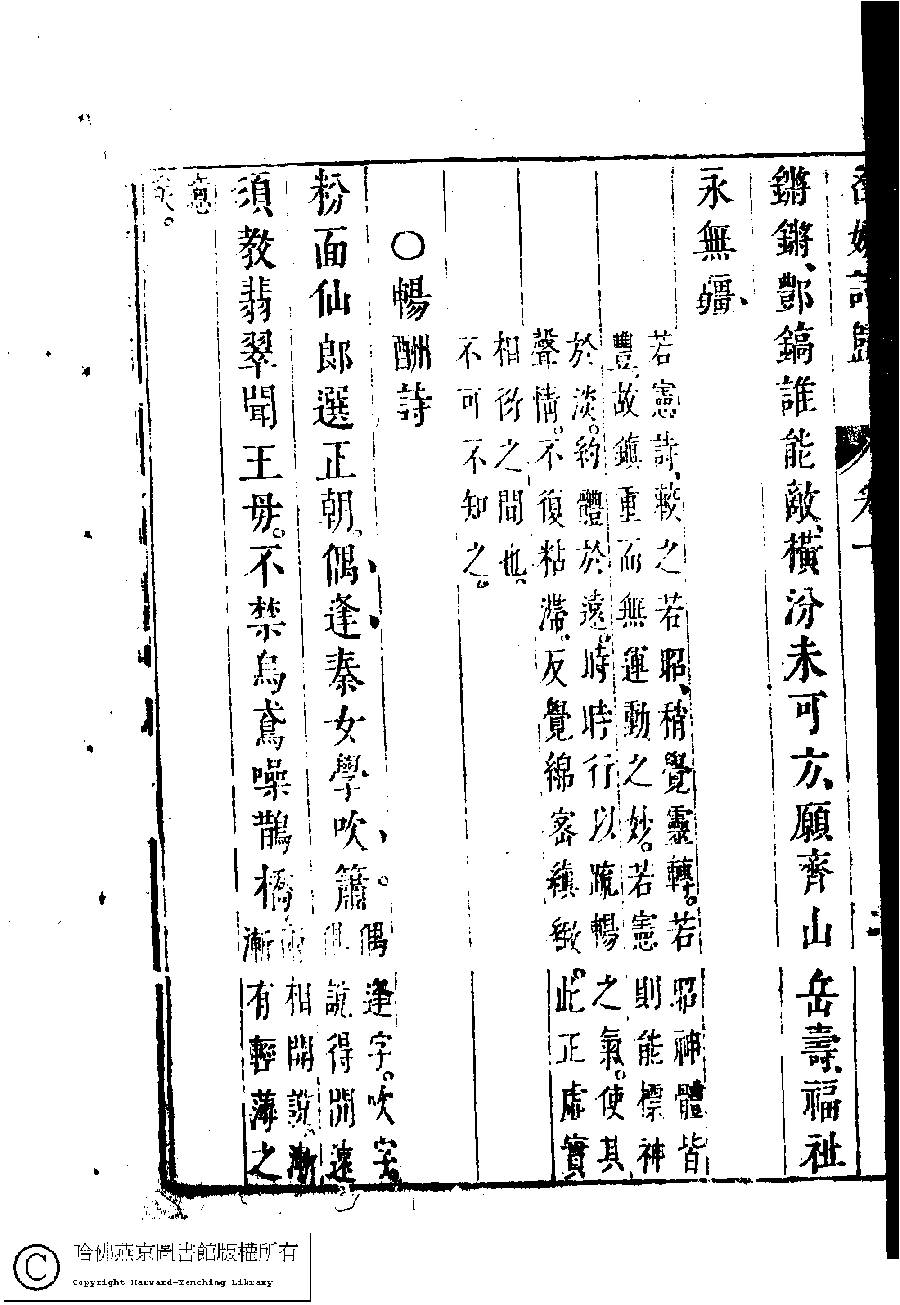 鏘鏘、酆鎬誰能敵、橫汾未可方、願齊山岳壽、福祉
永無疆、
若憲詩、較之若昭、稍覺靈轉。若昭神體皆
豐、故鎮重而無運動之妙。若憲則能標神
於淡。約體於遠。時時行以疏暢之氣。使其
聲情。不復粘滯、反覺綿密縝緻。此正虛實
相衍之間也。
不可不知之。
○暢酬詩
粉面仙郎選正朝。偶逢秦女學吹簫。
偶逢字。吹字。
俱說得閒遠
須教翡翠聞王母。不禁烏鳶噪鵲橋
相開說。漸
漸有輕薄之
意
矣。
哈佛燕京圖書館版權所有
Copyright Harvard-Yenching Library